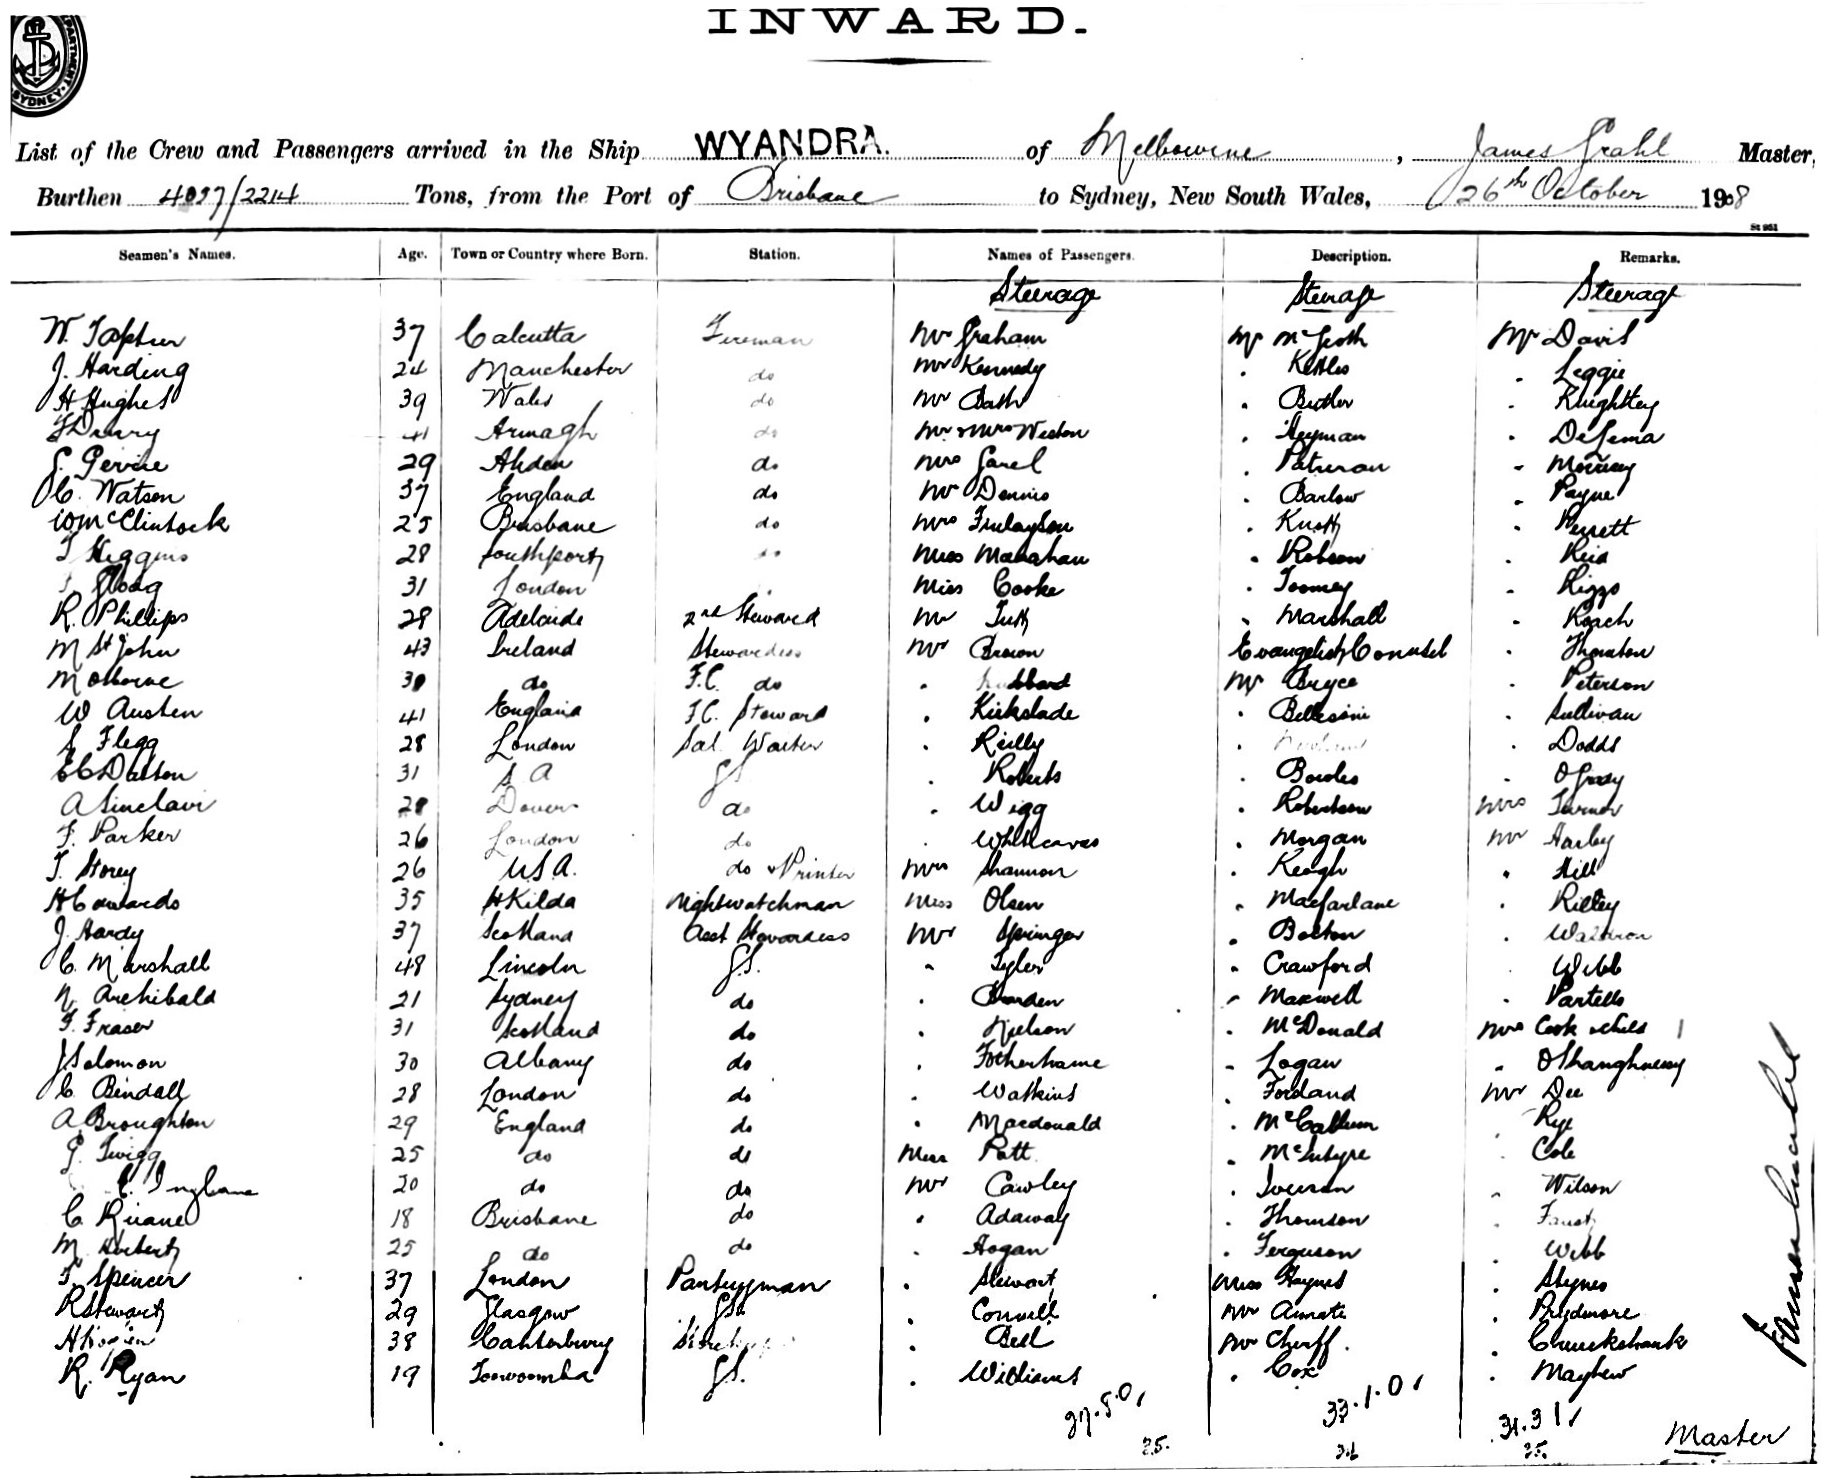 INWARD.
DEPARTMENT SYDNEY
List of the Crew and Passengers arrived in the Ship WYANDRA. of Melbourne, James Grahl Master,
Burthen 4057/2214 Tons, from the Port of Brisbane to Sydney, New South Wales, 26th October 1908
St 951
Seamen's Names. Age. Town or Country where Born. Station. Names of Passengers. Description. Remarks.
Steerage Steerage Steerage
37 Calcutta Fireman Mr Graham Mr McGrath Mr David
J. Harding 24 Manchester do Mr Kennedy . Kettles . Leggie
H Hughes 39 Wales do Mr Bath . Butler . Knightley
41 Armagh do Mr & Mrs Weston . Heyman .
29 do Mrs Garel . . Morrisey
C. Watson 37 England do Mr Dennis . Barlow . Payne
Wm McClintock 25 Brisbane do Mrs Finlayson . Knott . Perrett
T Higgins 28 Southport do Miss Manahan . Robson . Reid
31 London Miss Cooke . Toomey . Riggs
R. Phillips 28 Adelaide 2nd Steward Mr Tutt . Marshall . Roach
M St John 43 Ireland Stewardess Mr Brown . Thornton
M Osborne 30 do F.C. do . Hubbard Mr Bryce . Peterson
W Austen 41 England F.C. Steward . Kirkslade . Bellesini . Sullivan
S Flegg 28 London Sal. Waiter . Reilly . . Dodds
E C Dalton 31 S A G.S. . Roberts . Bowles . O'Grady
A Sinclair 28 Dover do . Wigg . Robertson Mrs Turner
F. Parker 26 London do . Whiteaves . Morgan Mr Harley
T. Storey 26 U.S.A. do & Printer Mrs Shannon . Keogh . Hill
H Edwards 35 St Kilda Nightwatchman Miss Olsen . Macfarlane . Rilley
J. Hardy 37 Scotland Asst Stewardess Mr Springer . Bolton . Waldron
C. Marshall 48 Lincoln G.S. . Tyler . Crawford . Webb
N. Archibald 21 Sydney do . Burden . Maxwell . Partells
F. Fraser 31 Scotland do . Nielson . McDonald Mrs Cook & child 1
J Solomon 30 Albany do . Fotherhame . Logan . O'Shanghnessy
C. Bindall 28 London do . Watkins . Fordand Mr Dee
A. Broughton 29 England do . Macdonald . McCallum . Rye
G. Twigg 25 do do Miss Patt . McIntyre . Cole
20 do do Mr Cawley . Iverson . Wilson
C. Ruane 18 Brisbane do . Adaway . Thomson . Faust
M. Herbert 25 do do . Hogan . Ferguson . Webb
T. Spencer 37 London Pantryman . Stewart Miss Haynes . Stynes
R Stewart 29 Glasgow G.S. . Connell Mr Amate . Prydmore
38 Canterbury . Best Mr Cheriff . . Cruickshank
R. Ryan 19 Toowoomba G.S. . Williams . Cox . Mayhew
27.8.0, 33.1.0, 31.3 1,
25. 34 35.
Master